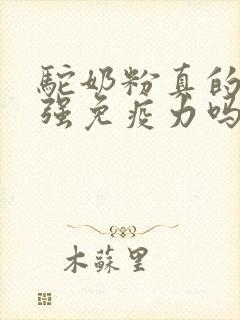 駝奶粉真的
強免疫力嗎
木蘇里